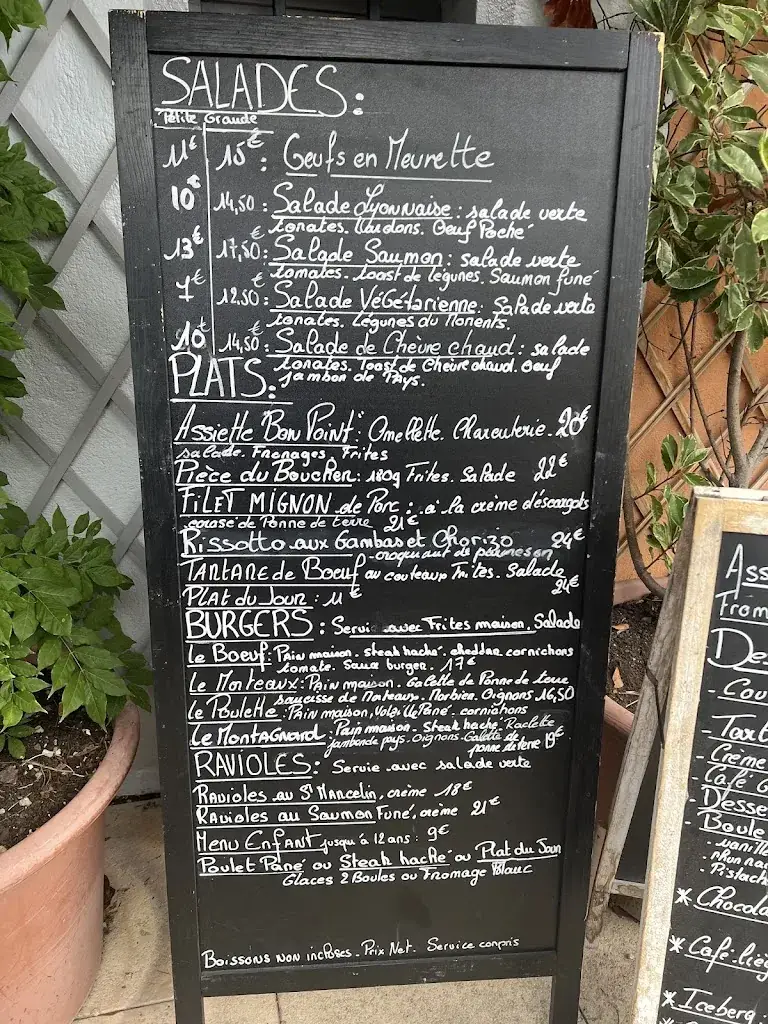 SALADES:
Petite Grande
11€ 15€: Oeufs en Meurette
10€ 14,50: Salade Lyonnaise: salade verte
tomates. lardons. Oeuf Poché
13€ 17,50€: Salade Saumon: salade verte
tomates. toast de légumes. Saumon fumé
7€ 12.50€: Salade Végétarienne. Salade verte
tomates. Légumes du Moments.
10€ 14,50€: Salade de Chèvre chaud: salade
tomates. Toast de Chèvre chaud. Oeuf
jambon de Pays.
PLATS:
Assiette "Bon Point": Omellette. Charcuterie. 20€
salade. Fromages. Frites
Pièce du Boucher: 180g Frites. Salade 22€
FILET MIGNON de Porc: à la crème d'éscargots
ecrasé de Pomme de terre 21€
Rissotto aux Gambas et Chorizo 24€
croquant de parmesan
TARTARE de Boeuf au couteau Frites. Salade
24€
PLAT du Jour: 11€
BURGERS: Servie avec Frites maison. Salade
Le Boeuf: Pain maison. steak haché. cheddar. cornichons
tomate. Sauce burger. 17€
Le Morteaux: Pain maison. Galette de Pomme de terre
saucisse de Morteaux. Morbier. Oignons 16,50
Le Poulette: Pain maison, Volaille Pané. cornichons
Le Montagnard: Pain maison. Steak haché. Raclette
jambon de pays. Oignons. Galette de
pomme de terre 19€
RAVIOLES: Servie avec salade verte
Ravioles au St Marcelin. crème 18€
Ravioles au Saumon Fumé. crème 21€
Menu Enfant jusqu'à 12 ans: 9€
Poulet Pané ou Steak haché ou Plat du Jour
Glaces 2 Boules ou Fromage Blanc
Boissons non incluses. Prix Net. Service compris
Ass
From
Des
- Cou
- Tart
- Crème
- Café G
- Desse
- Boule
- vanill
- rhum ra
- Pistach
* Chocola
* Café lièg
* Iceberg: